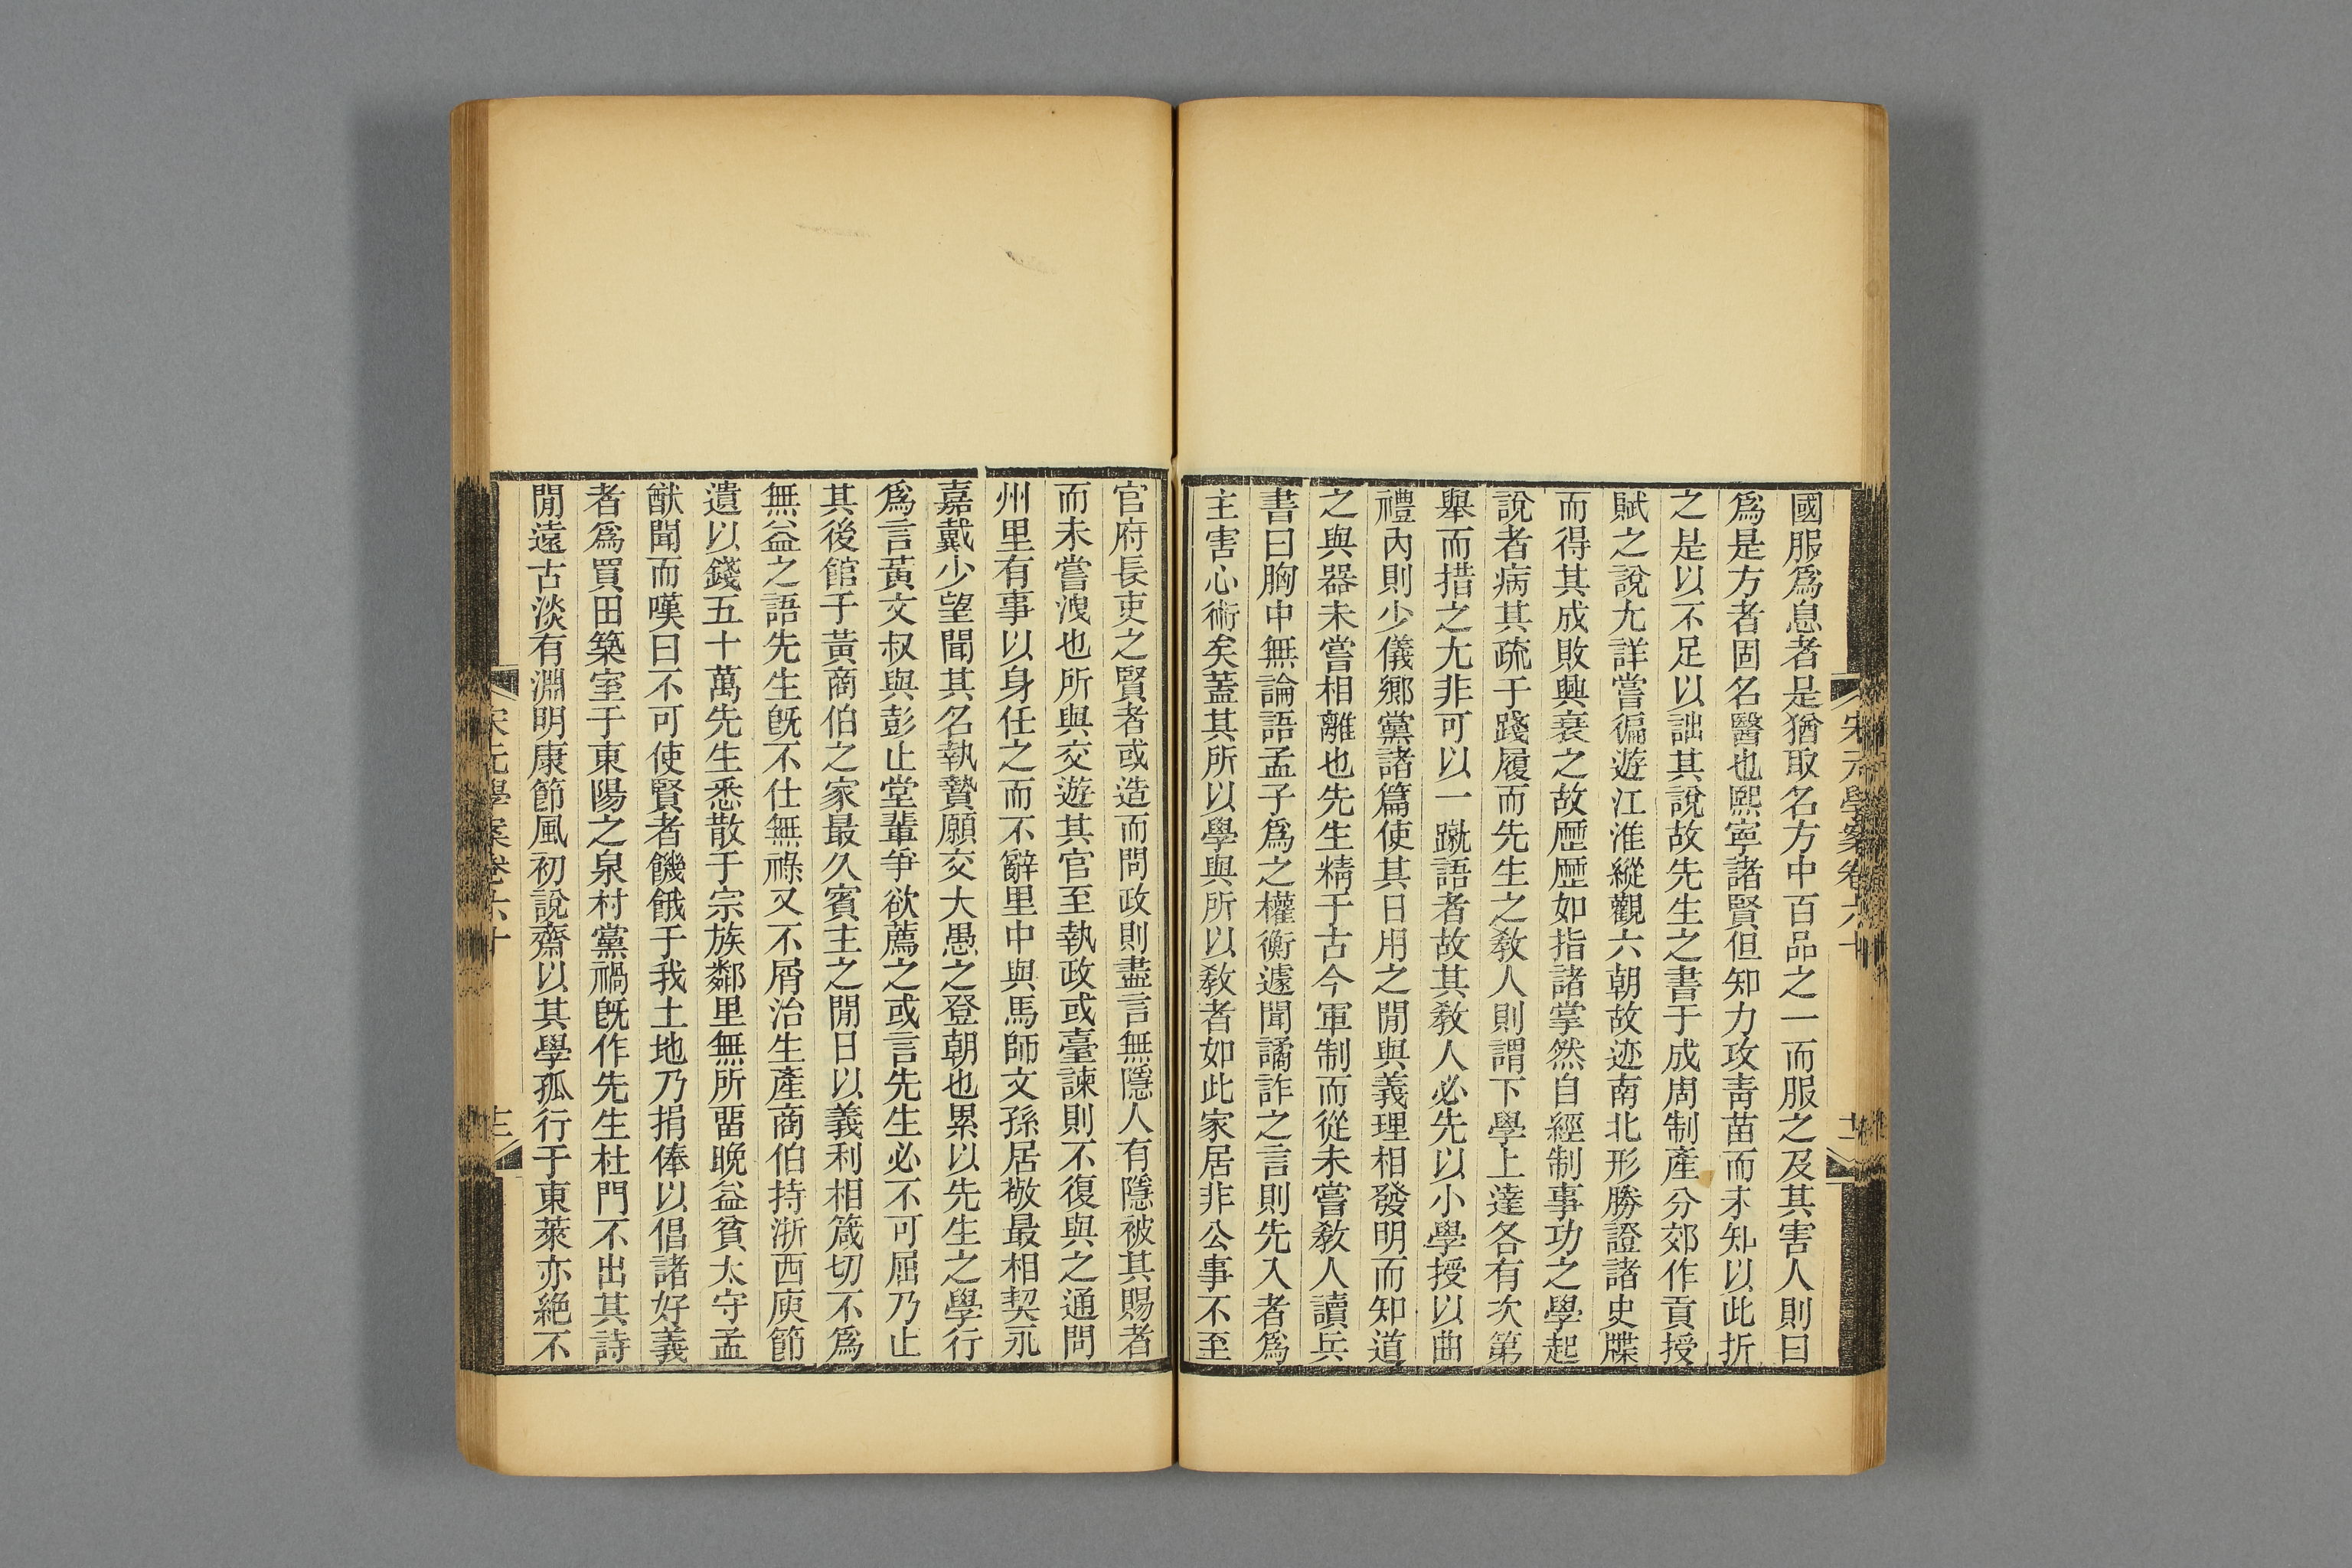 宋元學案卷六十
十二
國服爲息者是猶取名方中百品之一而服之及其害人則曰
爲是方者固名醫也熙寧諸賢但知力攻靑苗而未知以此折
之是以不足以詘其說故先生之書于成周制產分郊作貢授
賦之說尤詳嘗徧遊江淮縱觀六朝故迹南北形勝證諸史牒
而得其成敗興衰之故歷歷如指諸掌然自經制事功之學起
說者病其疏于踐履而先生之敎人則謂下學上達各有次第
舉而措之尤非可以一蹴語者故其敎人必先以小學授以曲
禮內則少儀鄉黨諸篇使其日用之閒與義理相發明而知道
之與器未嘗相離也先生精于古今軍制而從未嘗敎人讀兵
書曰胸中無論語孟子爲之權衡遽聞譎詐之言則先入者爲
主害心術矣蓋其所以學與所以敎者如此家居非公事不至
官府長吏之賢者或造而問政則盡言無隱人有隱被其賜者
而未嘗洩也所與交遊其官至執政或臺諫則不復與之通問
州里有事以身任之而不辭里中與馬師文孫居敬最相契永
嘉戴少望聞其名執贄願交大愚之登朝也累以先生之學行
爲言黃文叔與彭止堂輩爭欲薦之或言先生必不可屈乃止
其後館于黃商伯之家最久賓主之閒日以義利相箴切不爲
無益之語先生旣不仕無祿又不屑治生產商伯持浙西庾節
遺以錢五十萬先生悉散于宗族鄰里無所畱晚益貧太守孟
猷聞而嘆曰不可使賢者饑餓于我土地乃捐俸以倡諸好義
者爲買田築室于東陽之泉村黨禍旣作先生杜門不出其詩
閒遠古淡有淵明康節風初說齋以其學孤行于東萊亦絕不
宋元學案卷六十
十三